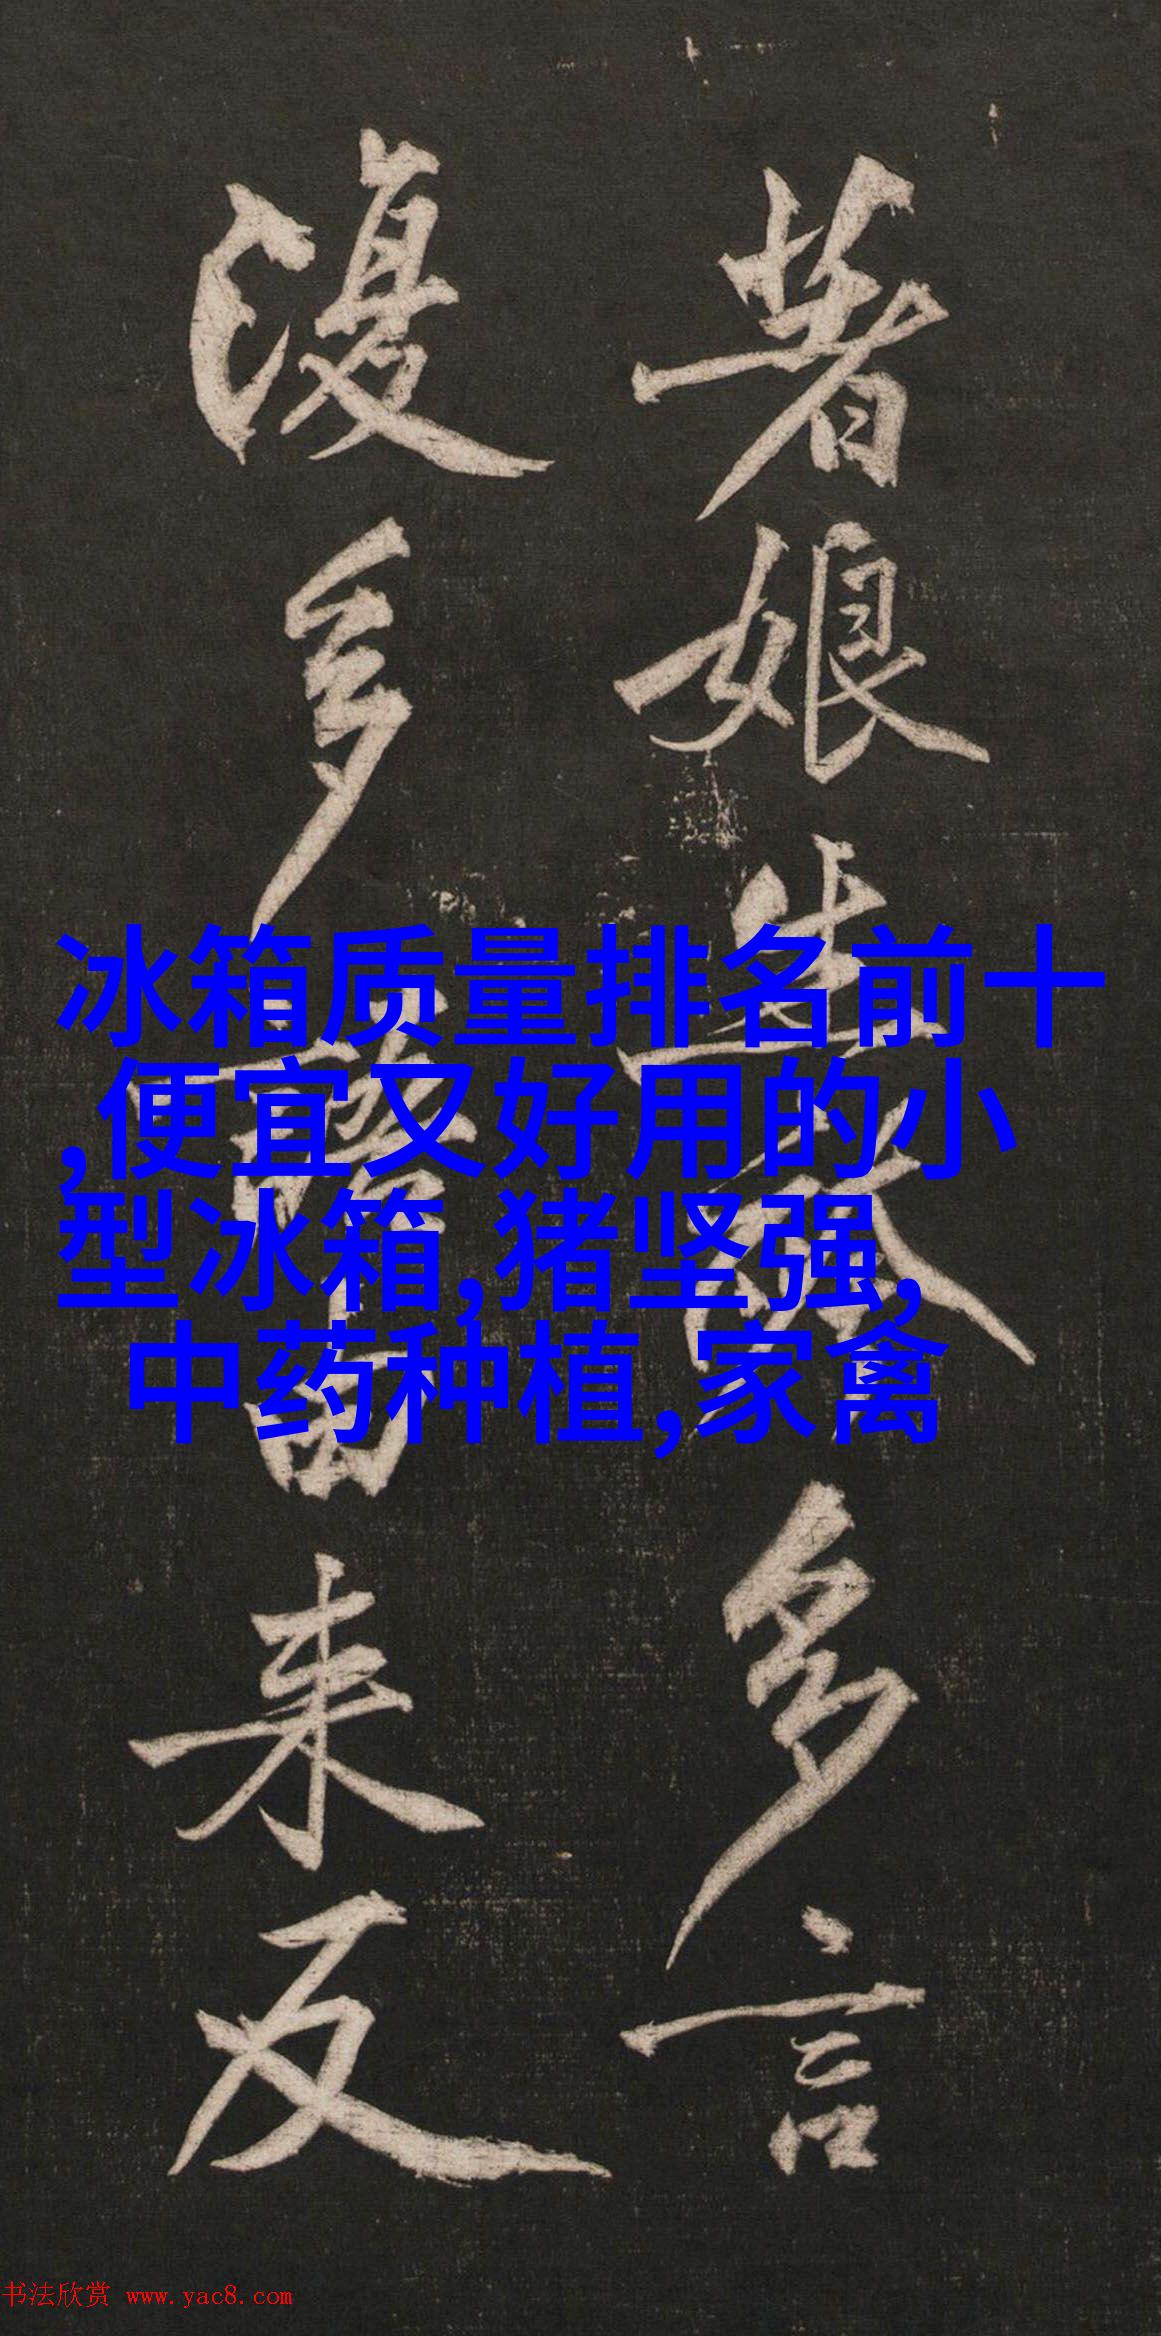 著娘生多言
復多語由来反
冰箱质量排名前十
,便宜又好用的小
型冰箱,猪坚强,
中药种植,家禽
书法欣赏 www.yac8.com